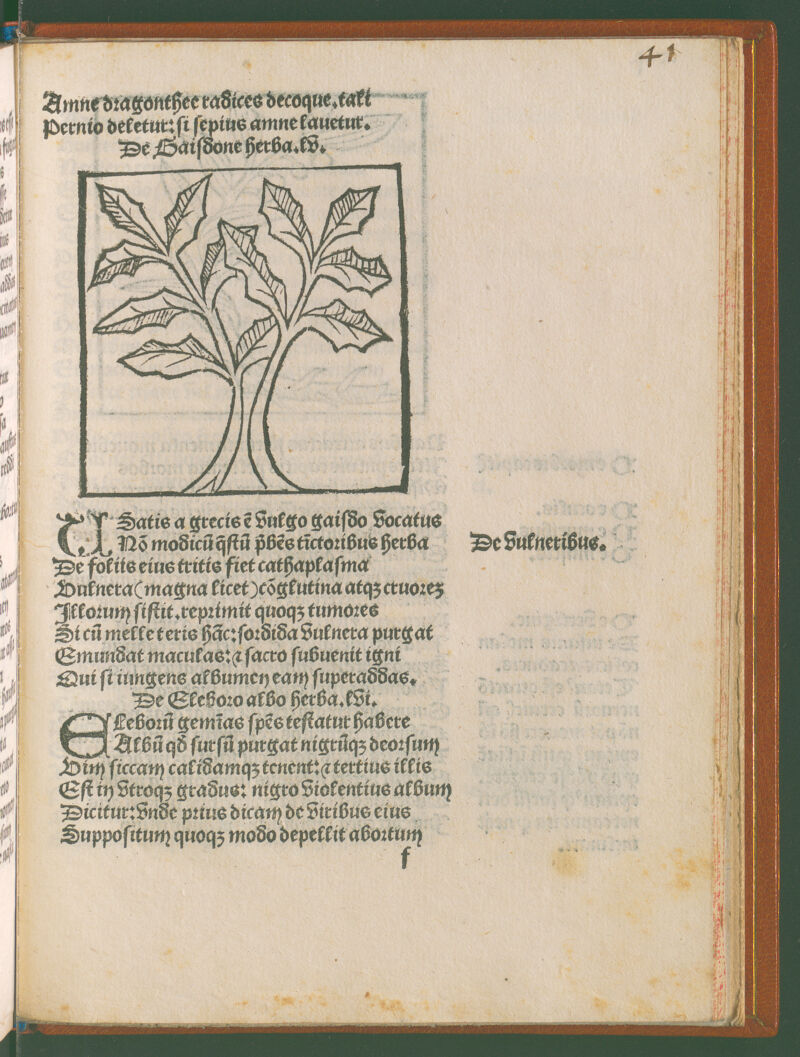 41
Amne dragonthee radices decoque, tali
Pernio deletur: si sepius amne lauetur.
De Gaisdone herba. lv.
ISatis a grecis ē vulgo gaisdo vocatus
Nō modicū q̄stū p̄bēs tīctoribus herba
De foliis eius tritis fiet cathaplasma
Vulnera (magna licet) cōglutina atqꝫ cruoreꝫ
Illorum sistit, reprimit quoqꝫ tumores
Si cū melle teris hāc: sordida vulnera purgat
Emundat maculas: ⁊ sacro subuenit igni
Qui si iungens albumen eam superaddas.
De Eleboro albo herba. lvi.
ELeborū gemīas sp̄es testatur habere
Albū qd̄ sursū purgat nigrūqꝫ deorsum
Vim siccam calidamqꝫ tenent: ⁊ tertius illis
Est in vtroqꝫ gradus: nigro violentius album
Dicitur: vnde prius dicam de viribus eius
Suppositum quoqꝫ modo depellit abortum
f
De vulneribus.